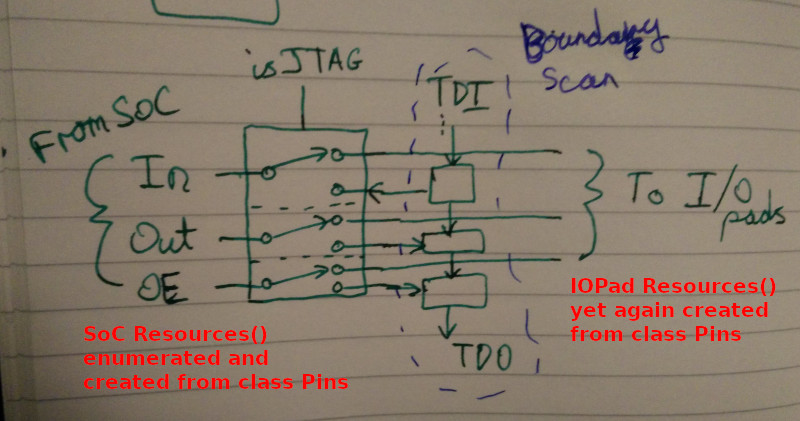 Boundary
Scan
isJTAG
TDI
From SoC
In
Out
OE
To I/O
pads
TDO
SoC Resources()
enumerated and
created from class Pins
IOPad Resources()
yet again created
from class Pins